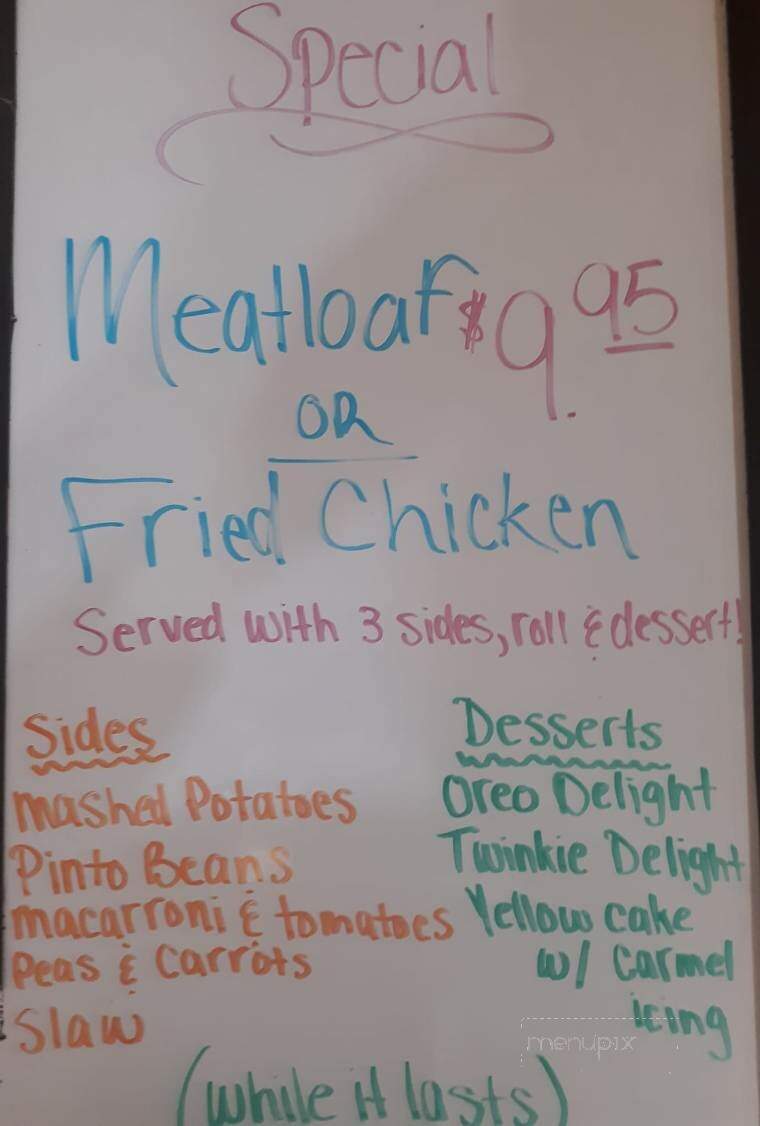 Special
Meatloaf $9.95
OR
Fried Chicken
Served with 3 sides, roll & dessert!
Sides
Mashed Potatoes
Pinto Beans
macarroni & tomatoes
Peas & Carrots
Slaw
Desserts
Oreo Delight
Twinkie Delight
Yellow cake
w/ Carmel
icing
(while it lasts)
menupix